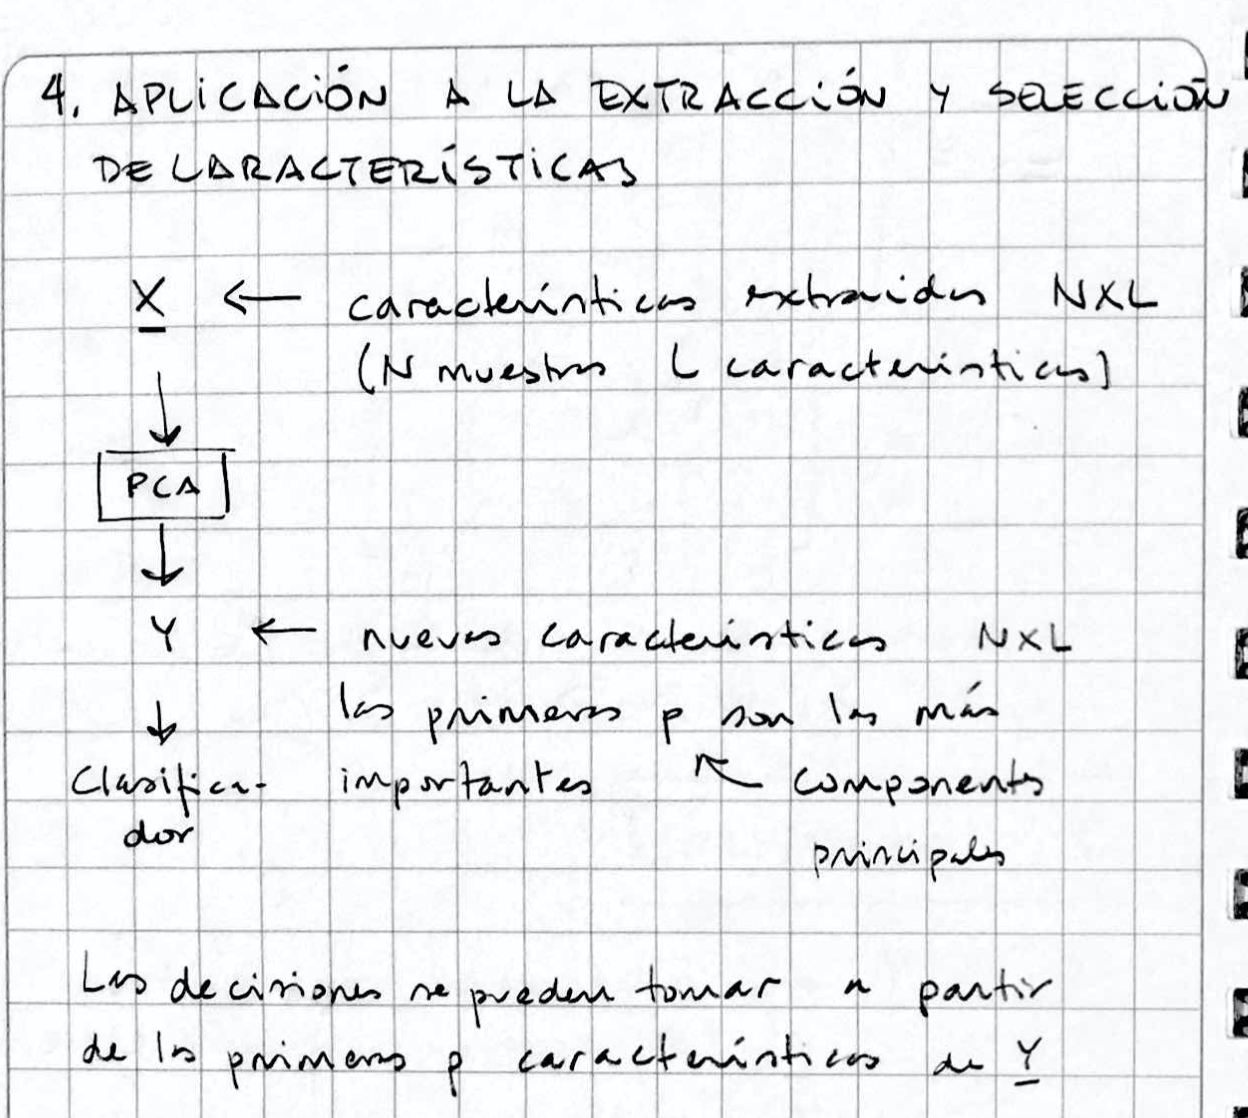 4. APLICACIÓN A LA EXTRACCIÓN Y SELECCIÓN
DE CARACTERÍSTICAS
X ← características extraidas NXL
(N muestras L características)
PCA
Y ← nuevas características NXL
las primeras p son las más
Clasifica- importantes ↖ components
dor
principales
Las decisiones se pueden tomar a partir
de las primeras p características de Y